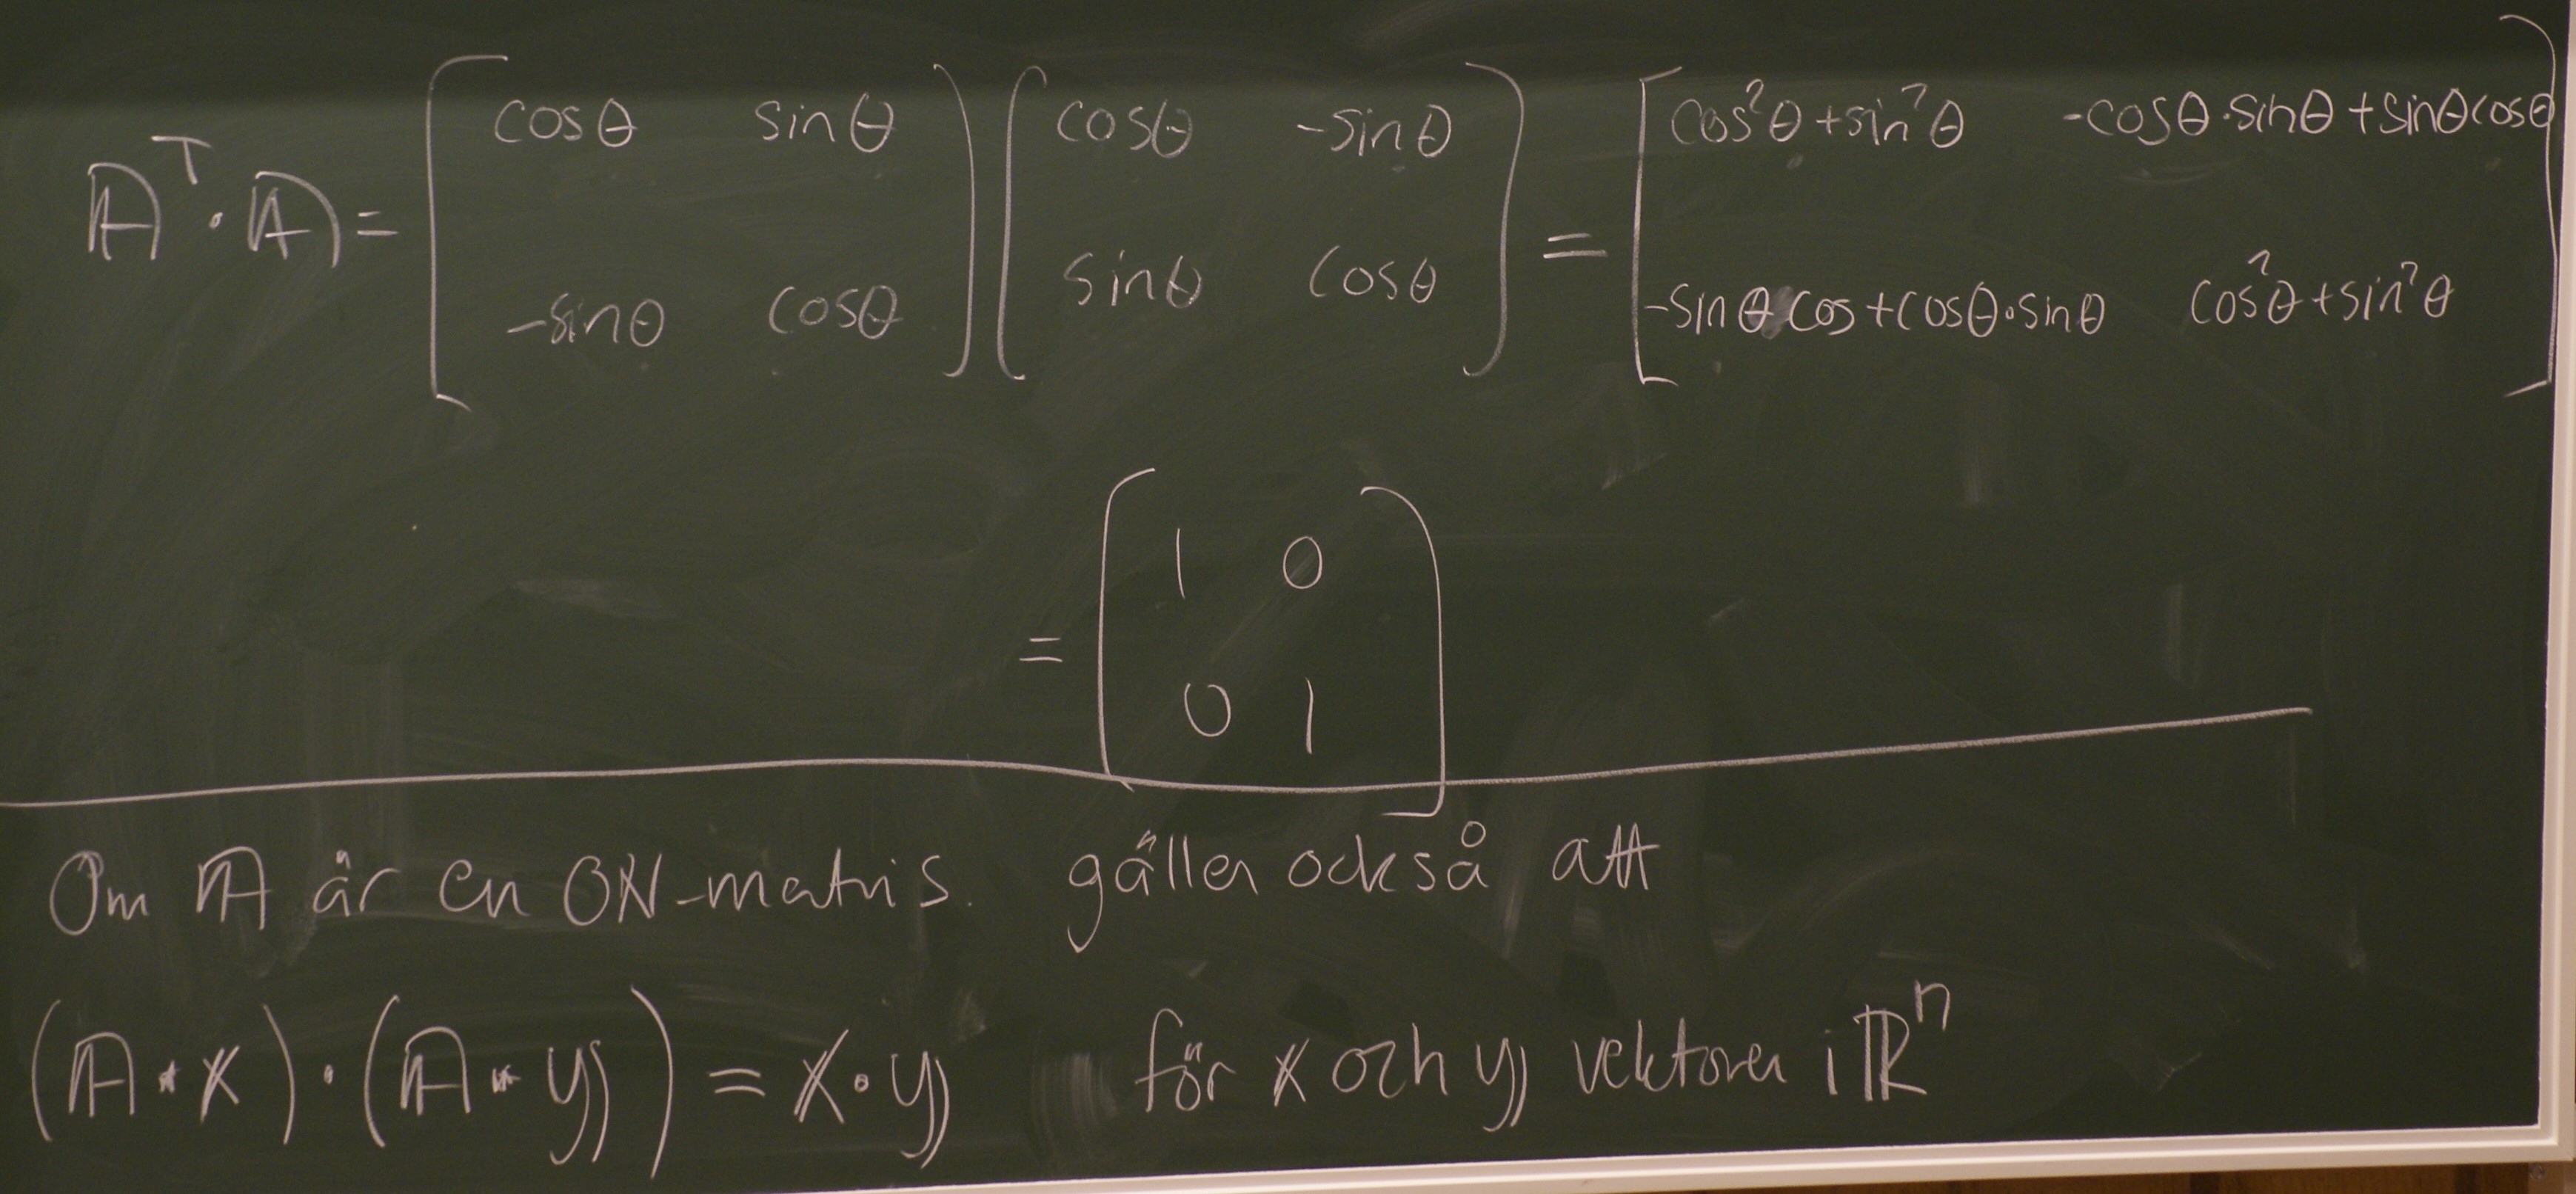 𝔸ᵀ · 𝔸 = [cosθ sinθ; -sinθ cosθ] [cosθ -sinθ; sinθ cosθ] = [cos²θ+sin²θ -cosθ·sinθ+sinθcosθ; -sinθcos+cosθ·sinθ cos²θ+sin²θ]
= [1 0; 0 1]
Om 𝔸 är en ON-matris. gäller också att
(𝔸·𝕩)·(𝔸·𝕪) = 𝕩·𝕪 för 𝕩 och 𝕪 vektorer i ℝⁿ